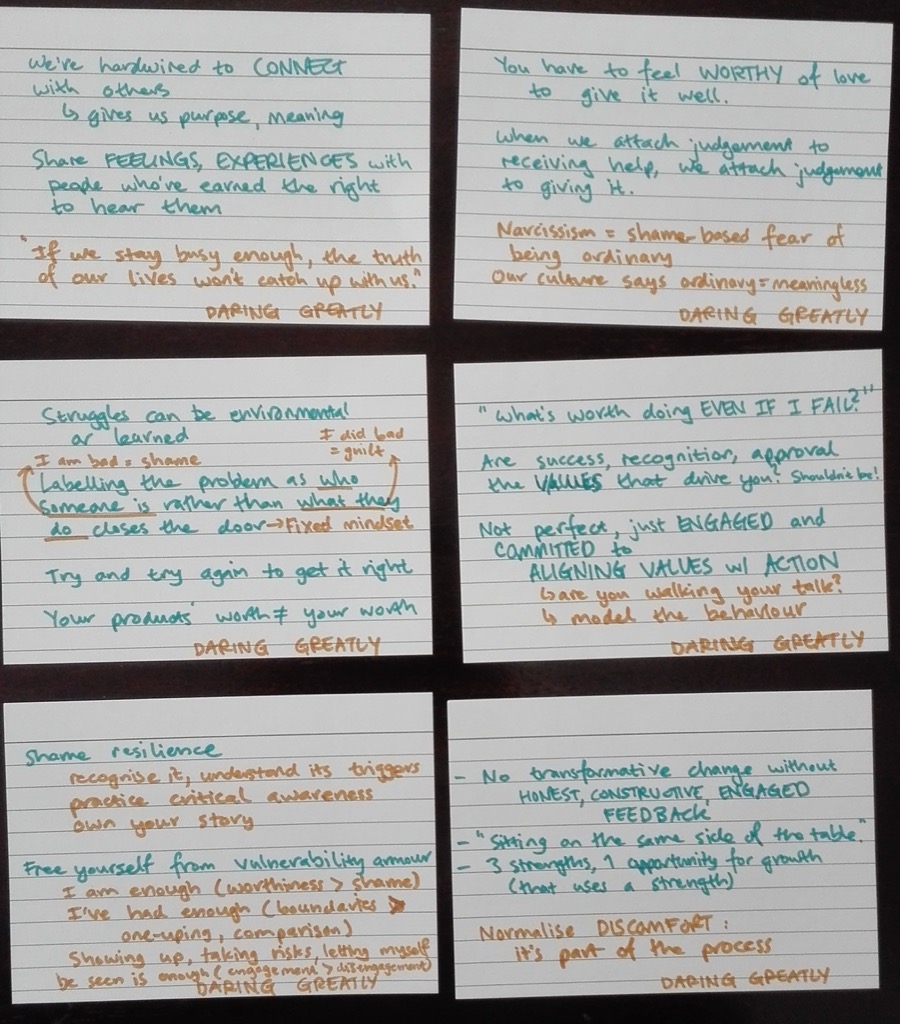 We're hardwired to CONNECT
with others
↳ gives us purpose, meaning
Share FEELINGS, EXPERIENCES with
people who've earned the right
to hear them
"If we stay busy enough, the truth
of our lives won't catch up with us."
DARING GREATLY
You have to feel WORTHY of love
to give it well.
When we attach judgement to
receiving help, we attach judgement
to giving it.
Narcissism = shame-based fear of
being ordinary
Our culture says ordinary = meaningless
DARING GREATLY
Struggles can be environmental
or learned
I did bad
= guilt
I am bad = shame
Labelling the problem as who
someone is rather than what they
do closes the door → Fixed mindset
Try and try again to get it right
Your products' worth ≠ your worth
DARING GREATLY
"What's worth doing EVEN IF I FAIL?"
Are success, recognition, approval
the VALUES that drive you? Shouldn't be!
Not perfect, just ENGAGED and
COMMITTED to
ALIGNING VALUES w/ ACTION
↳ are you walking your talk?
↳ model the behaviour
DARING GREATLY
Shame resilience
recognise it, understand its triggers
practice critical awareness
own your story
Free yourself from vulnerability armour
I am enough (worthiness > shame)
I've had enough (boundaries >
one-uping, comparison)
Showing up, taking risks, letting myself
be seen is enough (engagement > disengagement)
DARING GREATLY
- No transformative change without
HONEST, CONSTRUCTIVE, ENGAGED
FEEDBACK
- "Sitting on the same side of the table."
- 3 strengths, 1 opportunity for growth
(that uses a strength)
Normalise DISCOMFORT:
it's part of the process
DARING GREATLY